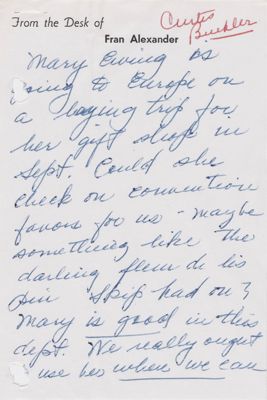 From the Desk of
Fran Alexander
Curtis
Buehler
Mary Ewing is
going to Europe on
a buying trip for
her gift shop in
Sept. Could she
check on convention
favors for us - maybe
something like the
darling fleur de lis
pin Skip had on?
Mary is good in this
dept. We really ought
use her where we can